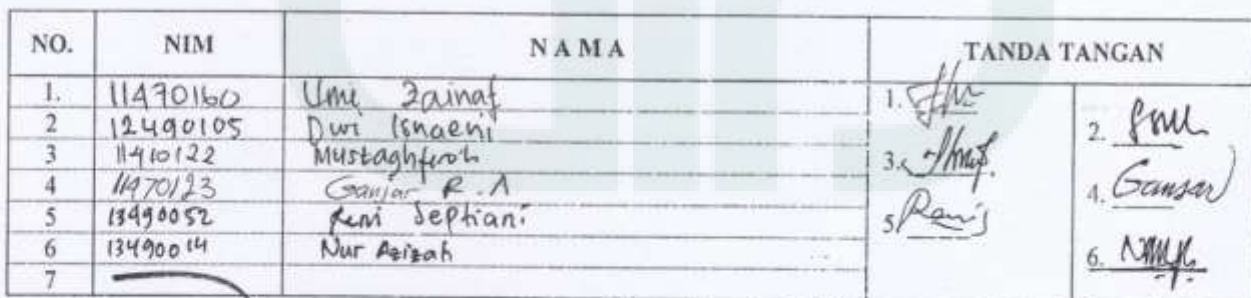 NO. NIM NAMA TANDA TANGAN
1. 11470160 Umi Zainaf 1.
2 12490105 Dwi Isnaeni 2.
3 11410122 Mustaghfiroh 3.
4 11470123 Ganjar R.A 4. Gansar
5 13490052 Reni Septiani 5 Renis
6 13490014 Nur Azizah 6.
7